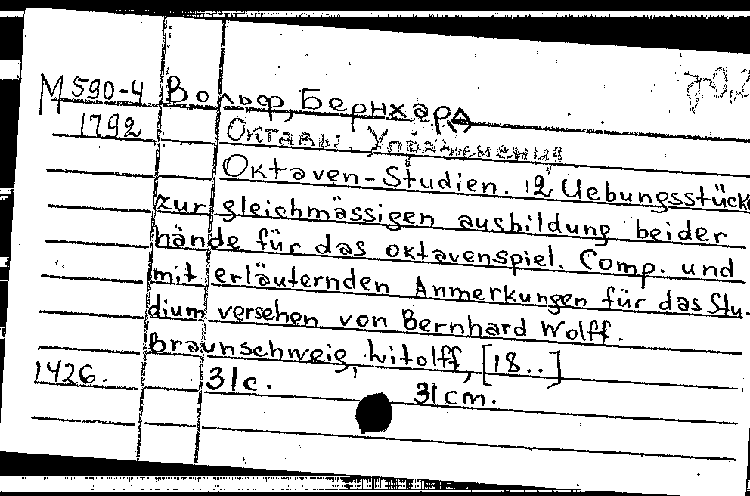 М 590-4 Вольф, Бернхард
1792 Октавы. Упражнения
Oktaven-Studien. 12 Uebungsstück
zur gleichmässigen ausbildung beider
hände für das oktavenspiel. Comp. und
mit erläuternden Anmerkungen für das Stu-
dium versehen von Bernhard Wolff.
Braunschweig, Litolff, [18..]
1426. 31c. 31 cm.